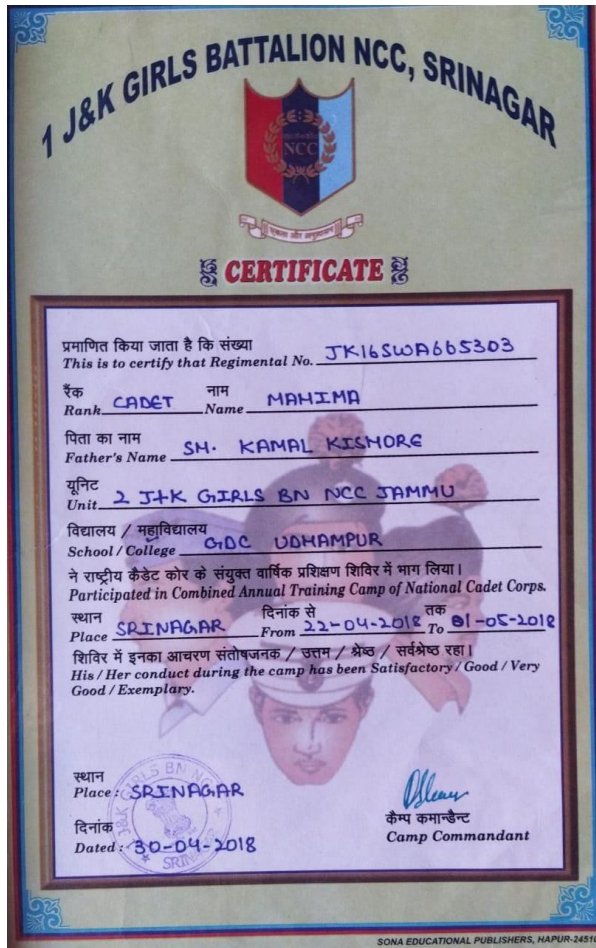 1 J&K GIRLS BATTALION NCC, SRINAGAR
NCC
एकता और अनुशासन
CERTIFICATE
प्रमाणित किया जाता है कि संख्या
This is to certify that Regimental No. JK16SWA665303
रैंक नाम
Rank CADET Name MAHIMA
पिता का नाम
Father's Name SH. KAMAL KISHORE
यूनिट
Unit 2 J+K GIRLS BN NCC JAMMU
विद्यालय / महाविद्यालय
School / College GDC UDHAMPUR
ने राष्ट्रीय कैडेट कोर के संयुक्त वार्षिक प्रशिक्षण शिविर में भाग लिया।
Participated in Combined Annual Training Camp of National Cadet Corps.
स्थान दिनांक से तक
Place SRINAGAR From 22-04-2018 To 01-05-2018
शिविर में इनका आचरण संतोषजनक / उत्तम / श्रेष्ठ / सर्वश्रेष्ठ रहा।
His / Her conduct during the camp has been Satisfactory / Good / Very
Good / Exemplary.
स्थान
Place : SRINAGAR
दिनांक
Dated : 30-04-2018
J&K GIRLS BN NCC
SRINAGAR
कैम्प कमान्डैन्ट
Camp Commandant
SONA EDUCATIONAL PUBLISHERS, HAPUR-24510